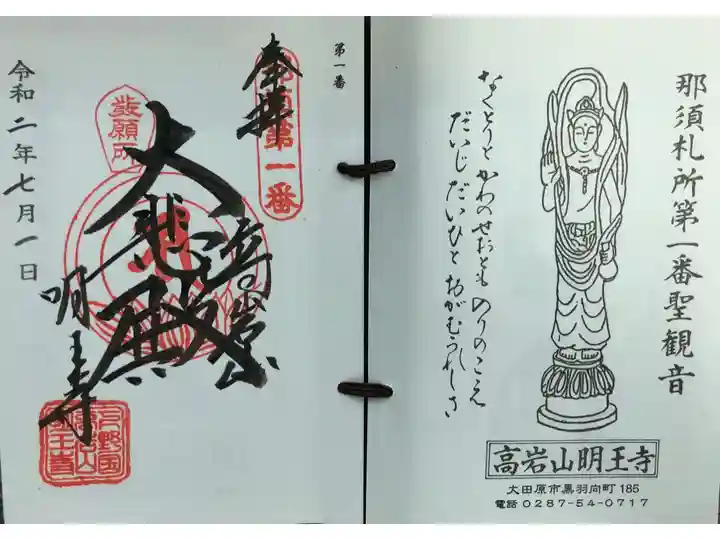 那須札所第一番聖観音
なくとりと かわのせおとも のりのこえ
だいじ だいひと おがむうれしさ
高岩山明王寺
大田原市黒羽向町 185
電話 0287-54-0717
第一番
奉拝
那須第一番
高岩山
大悲殿
發願所
明王寺
令和二年七月一日